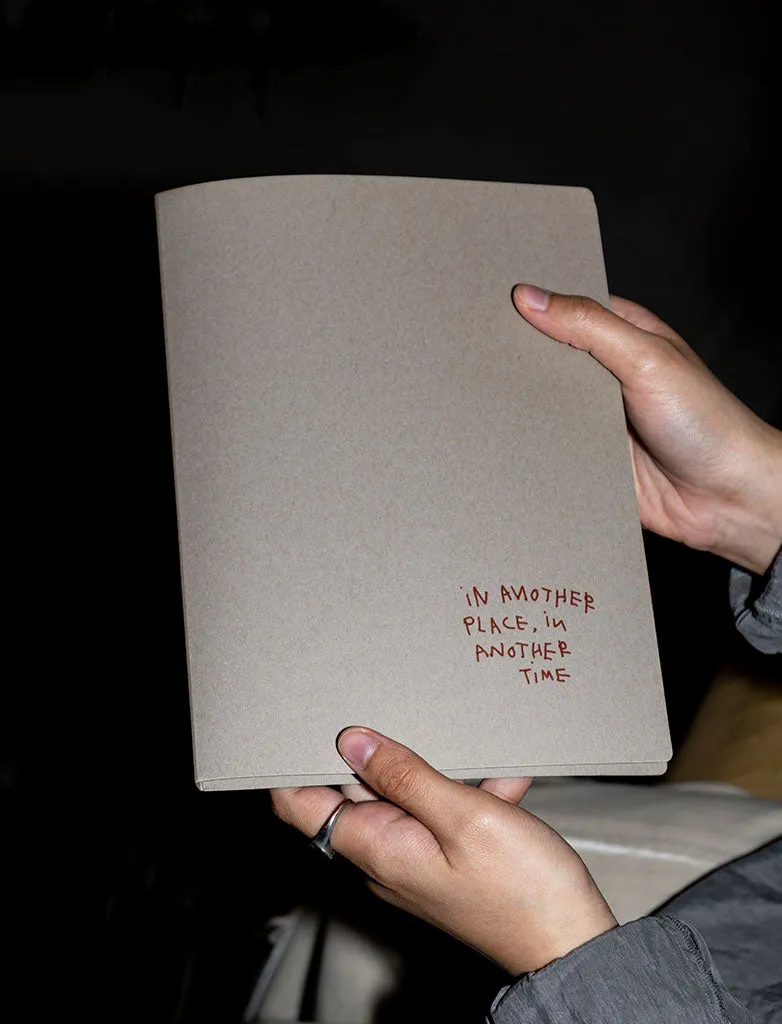 iN ANOTHER
PLACE, in
ANOTHER
TiME